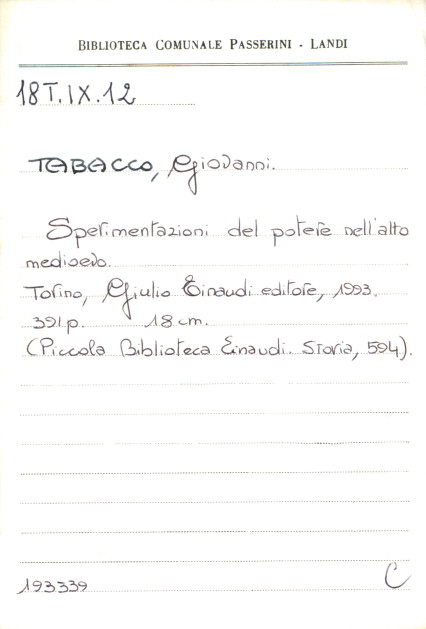 BIBLIOTECA COMUNALE PASSERINI - LANDI
18T.IX.12
TABACCO, Giovanni.
Sperimentazioni del potere nell'alto
medioevo.
Torino, Giulio Einaudi editore, 1993.
391 p. 18 cm.
(Piccola Biblioteca Einaudi. Storia, 594).
193339
C